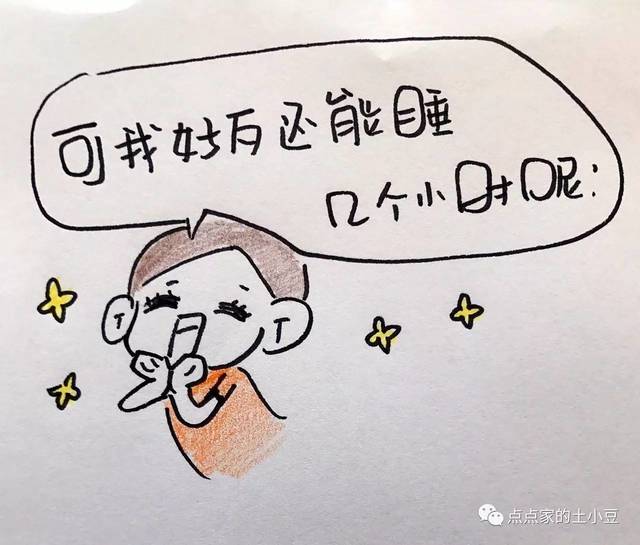 可我好歹还能睡
几个小时呢;
点点家的土小豆